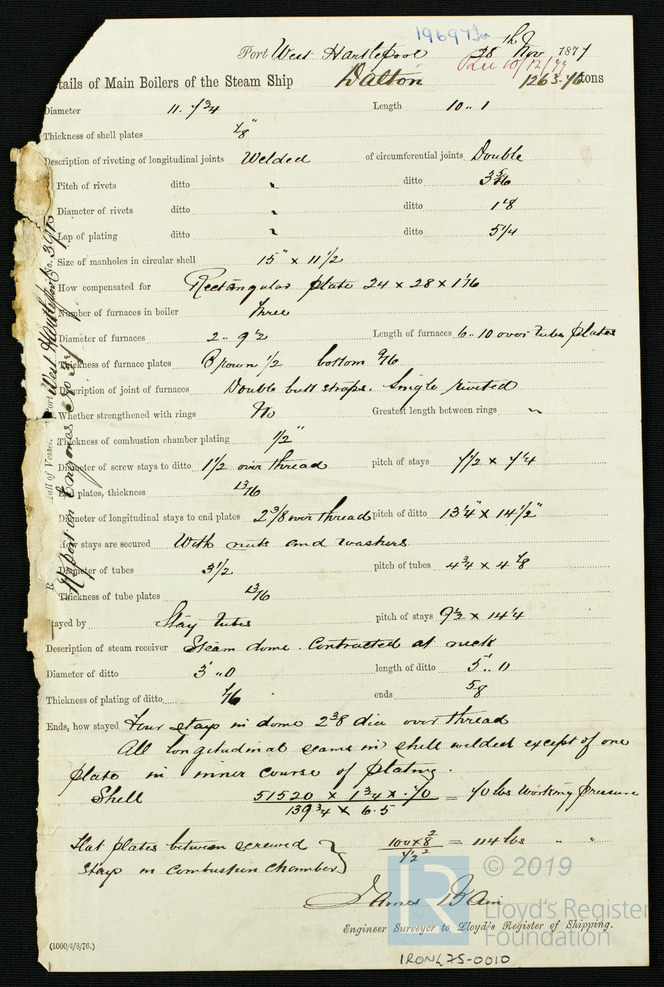 19697
Port West Hartlepool 28th Nov 1877
Rec 10/12/77
tails of Main Boilers of the Steam Ship Dalton 1263.76 tons
Diameter 11. 7 3/4 Length 10 .. 1
Thickness of shell plates 7/8"
Description of riveting of longitudinal joints Welded of circumferential joints Double
Pitch of rivets ditto " ditto 3 3/16
Diameter of rivets ditto " ditto 1 1/8
Lap of plating ditto " ditto 5 1/4
Size of manholes in circular shell 15" x 11 1/2
How compensated for Rectangular plate 24 x 28 x 1 1/16
Number of furnaces in boiler Three
Diameter of furnaces 2 .. 9 1/2 Length of furnaces 6 .. 10 over tube plates
Thickness of furnace plates Crown 1/2 bottom 9/16
Description of joint of furnaces Double butt straps. Single riveted
Whether strengthened with rings No Greatest length between rings "
Thickness of combustion chamber plating 1/2"
Diameter of screw stays to ditto 1 1/2 over thread pitch of stays 7 1/2 x 7 1/4
End plates, thickness 13/16
Diameter of longitudinal stays to end plates 2 3/8 over thread pitch of ditto 13 1/4" x 14 1/2"
How stays are secured With nuts and washers
Diameter of tubes 3 1/2 pitch of tubes 4 3/4 x 4 7/8
Thickness of tube plates 13/16
Stayed by Stay tubes pitch of stays 9 1/2 x 14 1/4
Description of steam receiver Steam dome. Contracted at neck
Diameter of ditto 3' .. 0 length of ditto 5 .. 0
Thickness of plating of ditto 7/16 ends 5/8
Ends, how stayed Four stays in dome 2 3/8 dia over thread
All longitudinal seams in shell welded except of one
plate in inner course of plating.
Shell 51520 x 1 3/4 x .70 / 139 3/4 x 6.5 = 70 lbs Working pressure
Flat plates between screwed
stays in Combustion Chamber } 100 x 8² / 7 1/2² = 114 lbs " "
James Bain
Engineer Surveyor to Lloyd's Register of Shipping.
(1000/4/8/76.)
IRON475-0010
Hull of Vessel Port West Hartlepool No. 3975
Report on Engines No
LR
© 2019
Lloyd's Register
Foundation